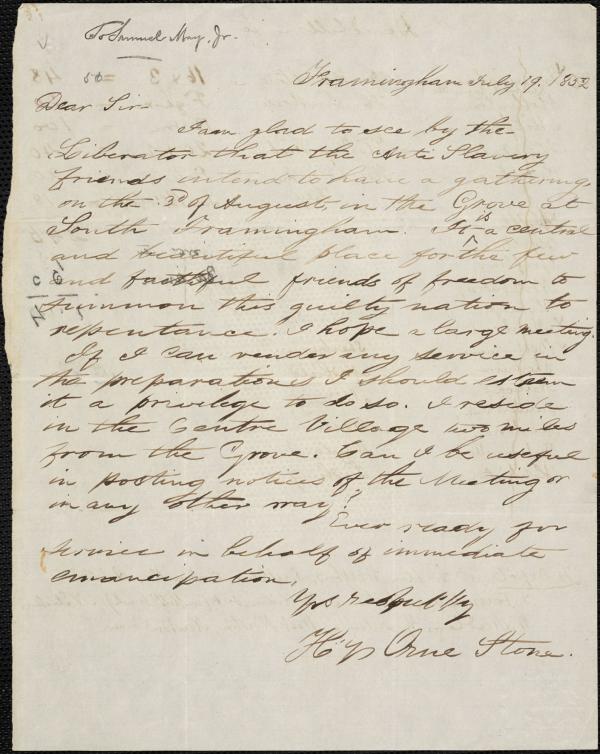 To Samuel May, Jr.
Framingham July 19. 1852
Dear Sir
I am glad to see by the
Liberator that the Anti Slavery
friends intend to have a gathering,
on the 3d of August, in the Grove at
South Framingham. It is a central
and beautiful place for the few
and faithful friends of freedom to
summon this guilty nation to
repentance. I hope a large meeting.
If I can render any service in
the preparations I should esteem
it a privilege to do so. I reside
in the Centre Village two miles
from the Grove. Can I be useful
in posting notices of the Meeting or
in any other way?
Ever ready for
service in behalf of immediate
emancipation,
Yrs respectfully
Orne Stone.